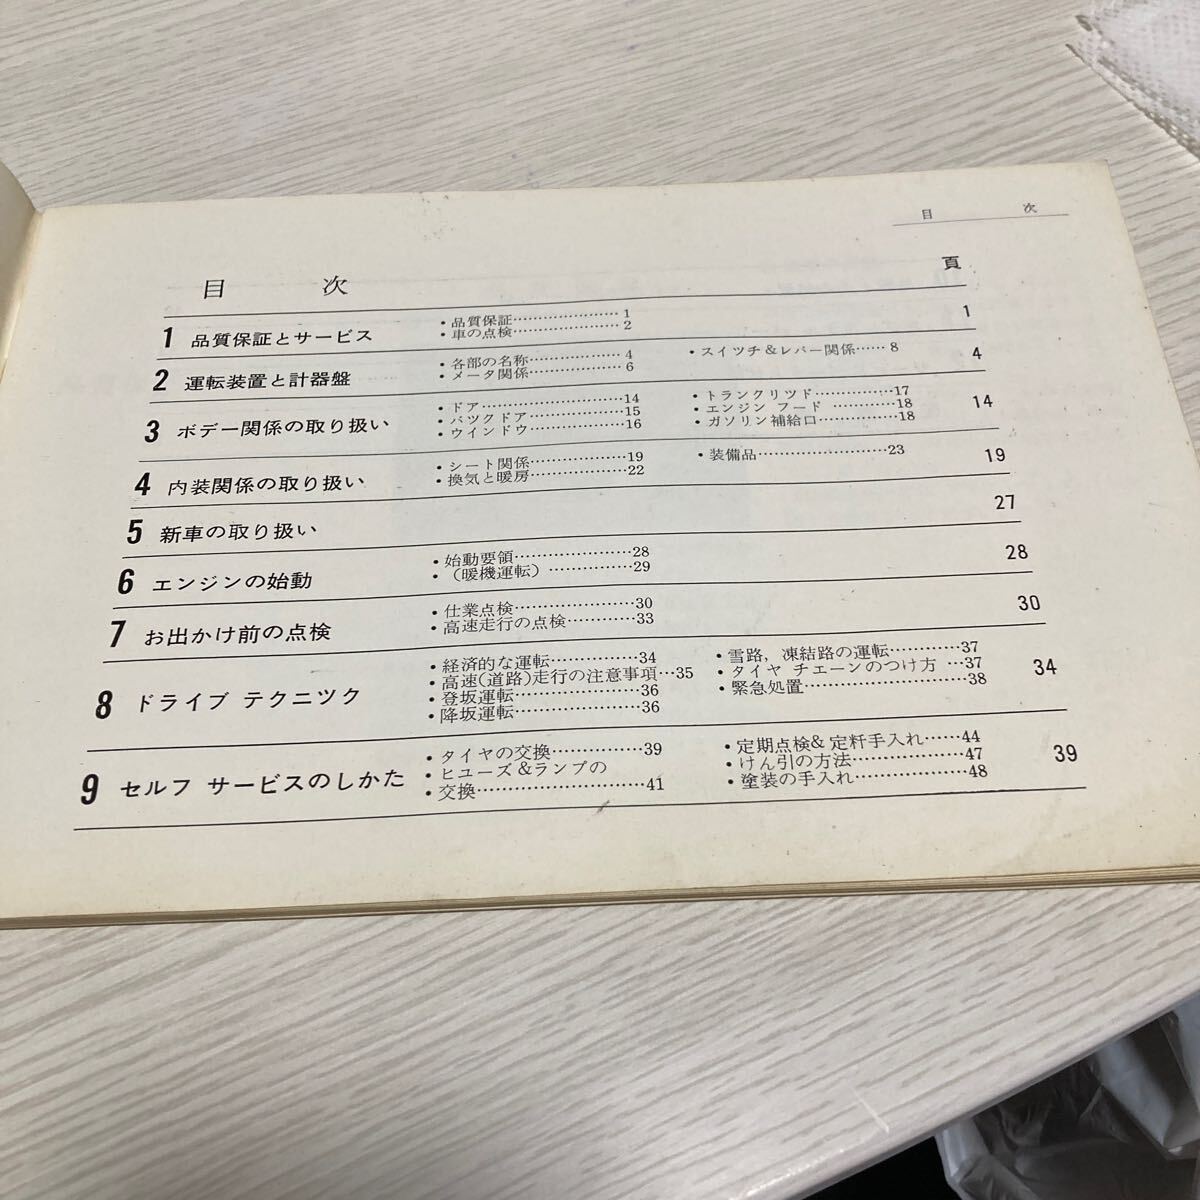 目 次
目 次
頁
1 品質保証とサービス
・品質保証………………… 1
・車の点検………………… 2
1
2 運転装置と計器盤
・各部の名称……………… 4
・メータ関係……………… 6
・スイツチ&レバー関係…… 8
4
3 ボデー関係の取り扱い
・ドア……………………14
・バツクドア……………15
・ウインドウ……………16
・トランクリツド……………17
・エンジン フード …………18
・ガソリン補給口……………18
14
4 内装関係の取り扱い
・シート関係……………19
・換気と暖房……………22
・装備品……………………23
19
5 新車の取り扱い
27
6 エンジンの始動
・始動要領…………………28
・(暖機運転)……………29
28
7 お出かけ前の点検
・仕業点検…………………30
・高速走行の点検…………33
30
8 ドライブ テクニツク
・経済的な運転……………34
・高速(道路)走行の注意事項…35
・登坂運転…………………36
・降坂運転…………………36
・雪路,凍結路の運転…………37
・タイヤ チエーンのつけ方 …37
・緊急処置………………………38
34
9 セルフ サービスのしかた
・タイヤの交換……………39
・ヒユーズ&ランプの
・交換………………………41
・定期点検& 定粁手入れ……44
・けん引の方法………………47
・塗装の手入れ………………48
39